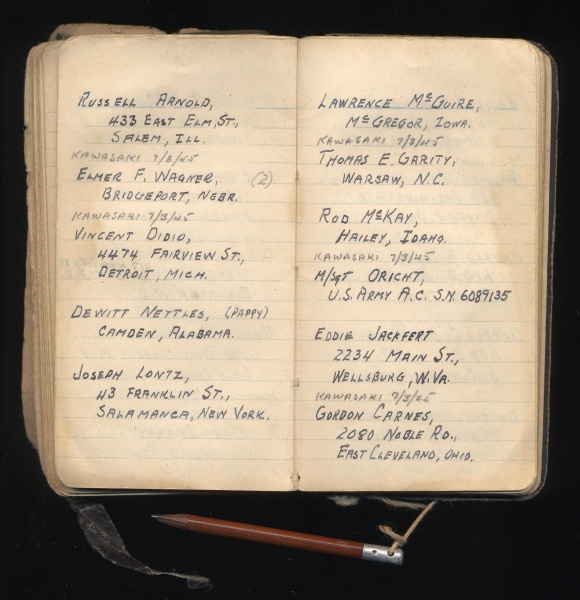 RUSSELL ARNOLD,
433 EAST ELM, ST.,
SALEM, ILL.
KAWASAKI 7/3/45
ELMER F. WAGNER, (2)
BRIDGEPORT, NEBR.
KAWASAKI 7/3/45
VINCENT DIDIO,
4474 FAIRVIEW ST.,
DETROIT, MICH.
DEWITT NETTLES, (PAPPY)
CAMDEN, ALABAMA.
JOSEPH LONTZ,
43 FRANKLIN ST.,
SALAMANCA, NEW YORK.
LAWRENCE McGUIRE,
McGREGOR, IOWA.
KAWASAKI 7/3/45
THOMAS E. GARITY,
WARSAW, N.C.
ROD McKAY,
HAILEY, IDAHO.
KAWASAKI 7/3/45
M/Sgt ORICHT,
U.S. ARMY A.C. S.N. 6089135
EDDIE JACKFERT
2234 MAIN ST.,
WELLSBURG, W.VA.
KAWASAKI 7/3/45
GORDON CARNES,
2080 NOBLE RD.,
EAST CLEVELAND, OHIO.